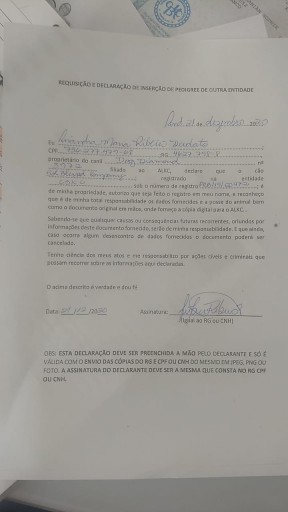 REQUISIÇÃO E DECLARAÇÃO DE INSERÇÃO DE MENORES DE OUTRA ENTIDADE
21 de dezembro, 2020
Eu Maria Ribeiro
CPF RG
proprietário do canil Dog Diamond nº
filiado ao ALKC, declaro que o cão
registrado na entidade
sob o número de registro é
de minha propriedade, autorizo que seja feito o registro em meu nome, e reconheço
que é de minha total responsabilidade os dados fornecidos e a posse do animal bem
como o documento original em mãos, onde forneço a cópia digital para o ALKC.
Sabendo-se que quaisquer causas ou consequências futuras recorrentes, oriundos por
informações deste documento fornecido, serão de minha responsabilidade. E que ainda,
caso ocorra algum desencontro de dados fornecidos o documento poderá ser
cancelado.
Tenho ciência dos meus atos e me responsabilizo por ações cíveis e criminais que
possam recorrer sobre as informações aqui declaradas.
O acima descrito é verdade e dou fé
Data: 21/12/2020 Assinatura:
(igual ao RG ou CNH)
OBS: ESTA DECLARAÇÃO DEVE SER PREENCHIDA A MÃO PELO DECLARANTE E SÓ É
VÁLIDA COM O ENVIO DAS CÓPIAS DO RG E CPF OU CNH DO MESMO EM JPEG, PNG OU
FOTO. A ASSINATURA DO DECLARANTE DEVE SER A MESMA QUE CONSTA NO RG CPF
OU CNH.